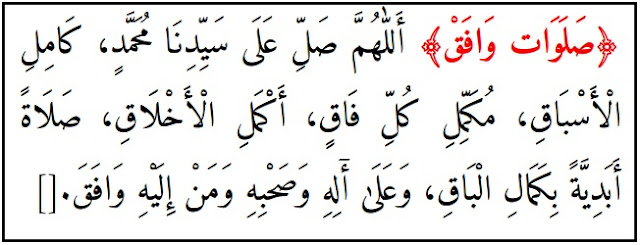 ﴿صَلَوَات وَافَقْ﴾ أَللّٰهُمَّ صَلِّ عَلَى سَيِّدِنَا مُحَمَّدٍ، كَامِلِ
الْأَسْبَاقِ، مُكَمِّلِ كُلِّ فَاقٍ، أَكْمَلِ الْأَخْلَاقِ، صَلَاةً
أَبَدِيَّةً بِكَمَالِ الْبَاقِ، وَعَلَىٰ أٰلِهِ وَصَحْبِهِ وَمَنْ إِلَيْهِ وَافَقَ.[]